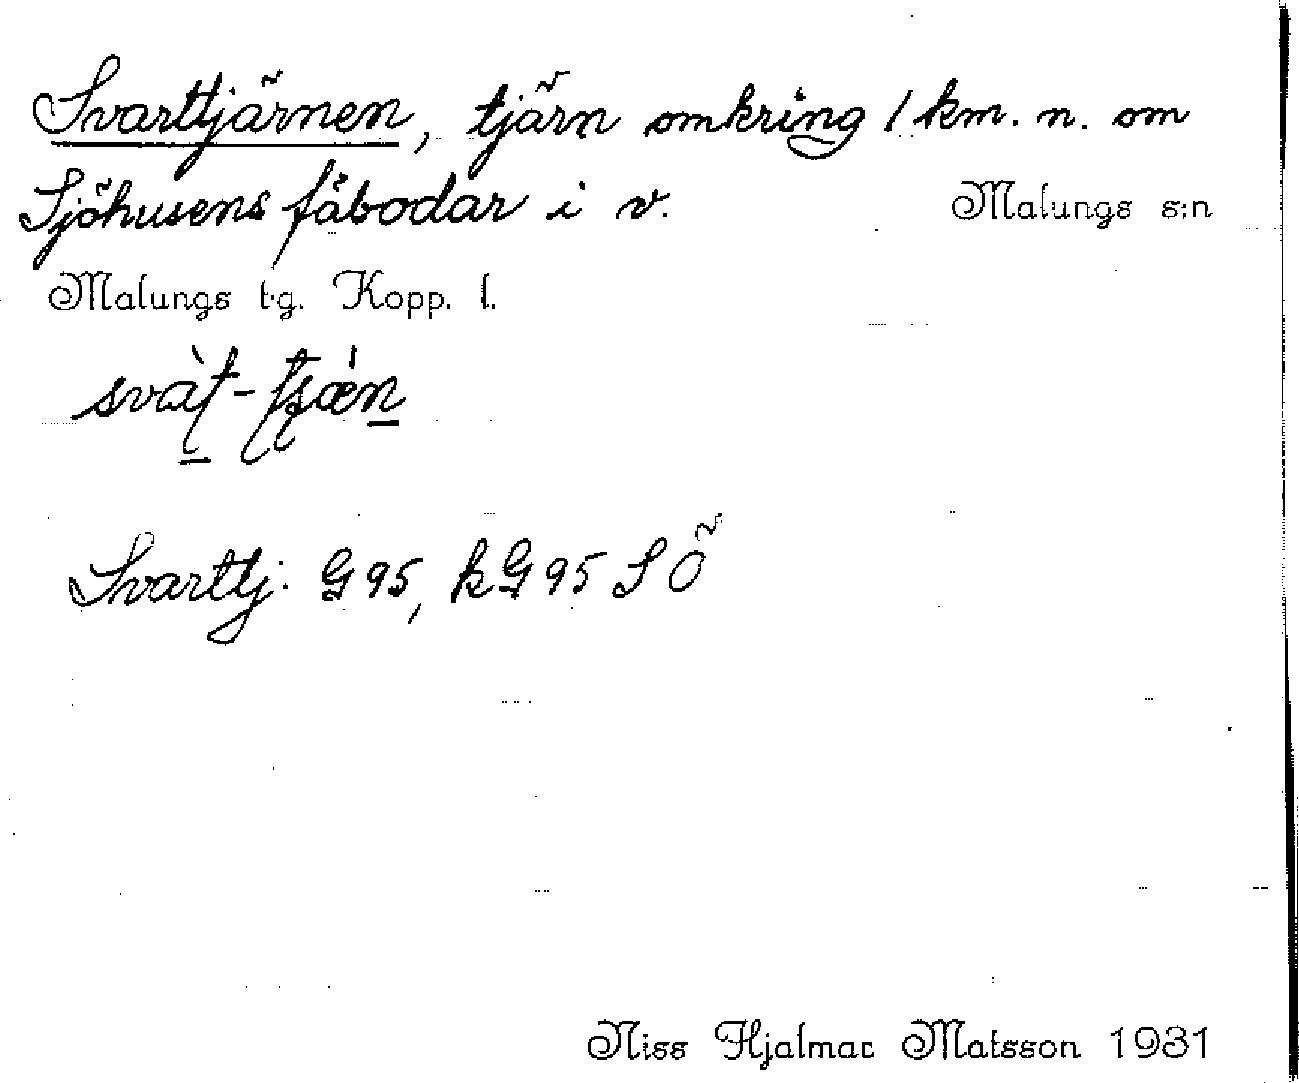 Svarttjärnen, tjärn omkring 1 km. n. om
Sjöhusens fäbodar i v. Malungs s:n
Malungs t.g. Kopp. l.
Svarttj. G95, kG95 SÖ
Niss Hjalmar Matsson 1931